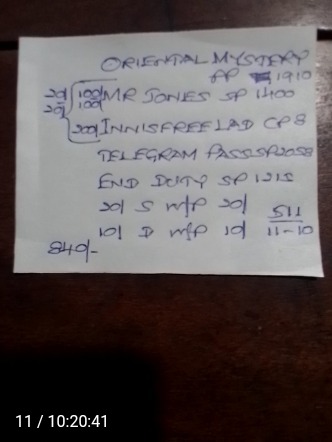 ORIENTAL MYSTERY
PP 1910
20/ 100/ MR JONES SP 1400
20/ 100/
200/ INNISFREE LAD CP 8
TELEGRAM PASS SP2058
END DUTY SP 1215
20/ S W/P 20/ 511
10/ D W/P 10/ 11-10
840/-
11 / 10:20:41